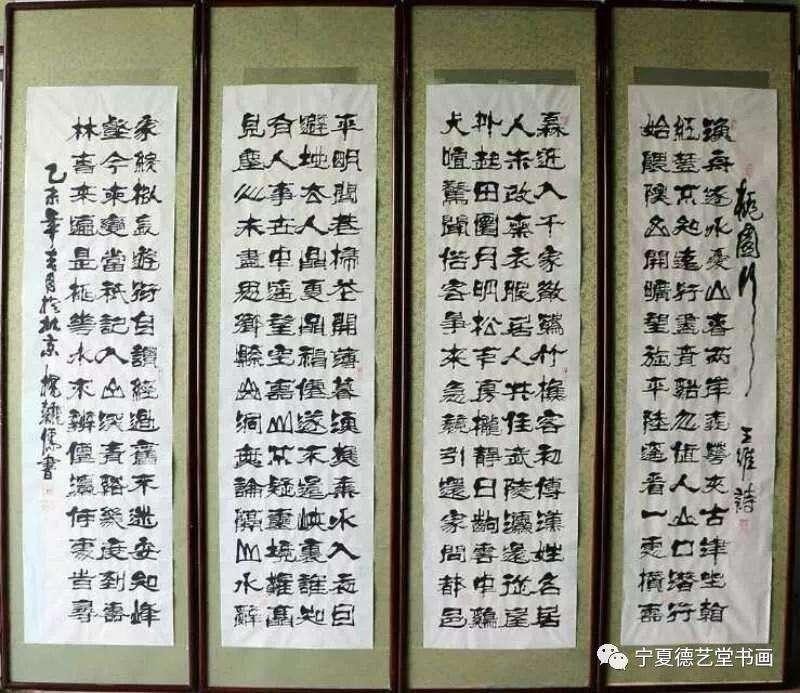 桃園行
王維詩
漁舟逐水愛山春兩岸桃華夾古津坐看
紅樹不知遠行盡青谿忽值人山口潛行
始隈隩山開曠望旋平陸遙看一處攢雲
樹近入千家散花竹樵客初傳漢姓名居
人未改秦衣服居人共住武陵源還從
外起田園月明松下房櫳靜日出雲中雞
犬喧驚聞俗客爭來集競引還家問都邑
平明閭巷掃花開薄暮漁樵乘水入初因
避地去人間更問神僊遂不還峽裏誰知
有人事世中遙望空雲山不疑靈境難聞
見塵心未盡思鄉縣出洞無論隔山水辭
家終擬長遊衍自謂經過舊不迷安知峰
壑今來變當時秖記入山深青谿幾度到雲
林春來遍是桃華水不辨僊源何處尋
乙未年春月於北京 書
宁夏德艺堂书画